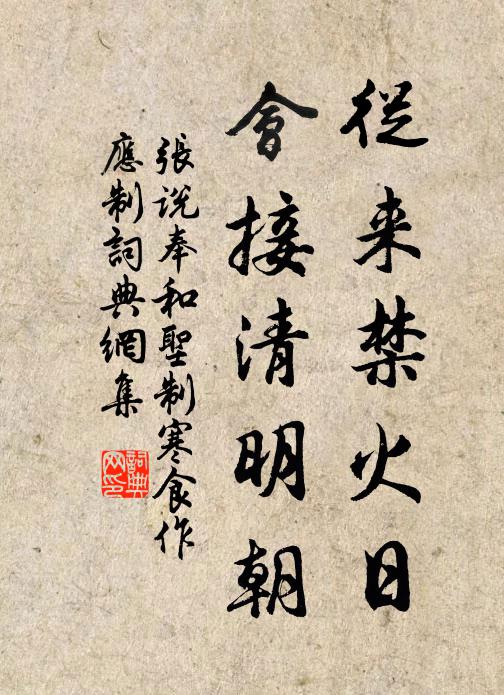 從来禁火日
會接清明朝
張說奉和聖制寒食作
應制詞典網集
詞典
网印